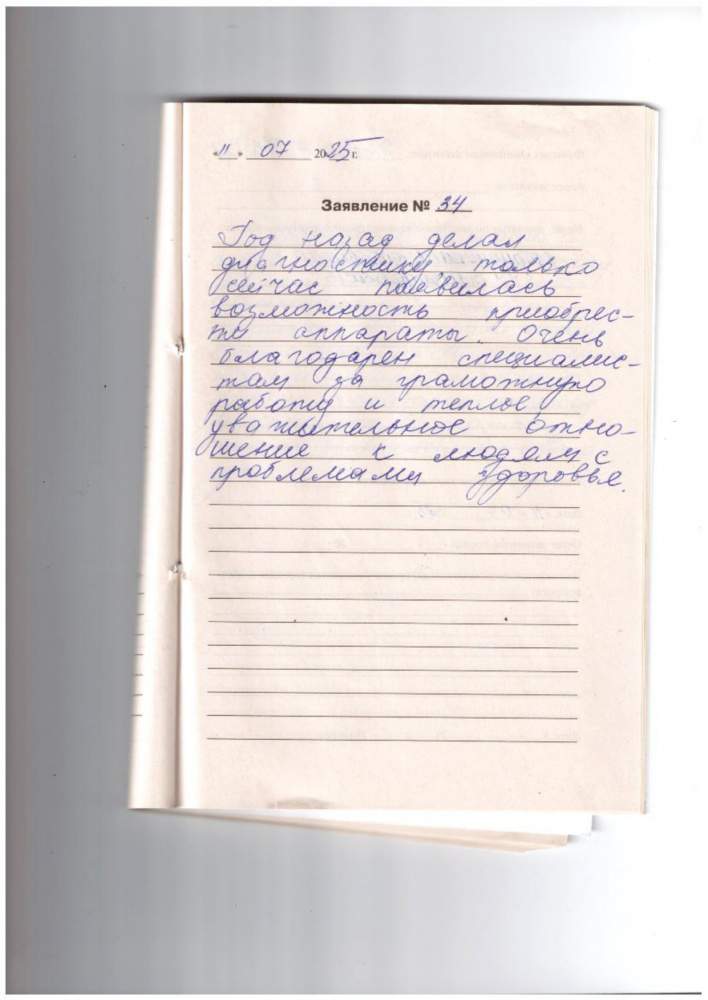 «11» 07 2025 г.
Заявление № 34
Год назад делал
диагностику, только
сейчас появилась
возможность приобрес-
ти аппараты. Очень
благодарен специалис-
там за грамотную
работу и теплое
уважительное отно-
шение к людям с
проблемами здоровья.